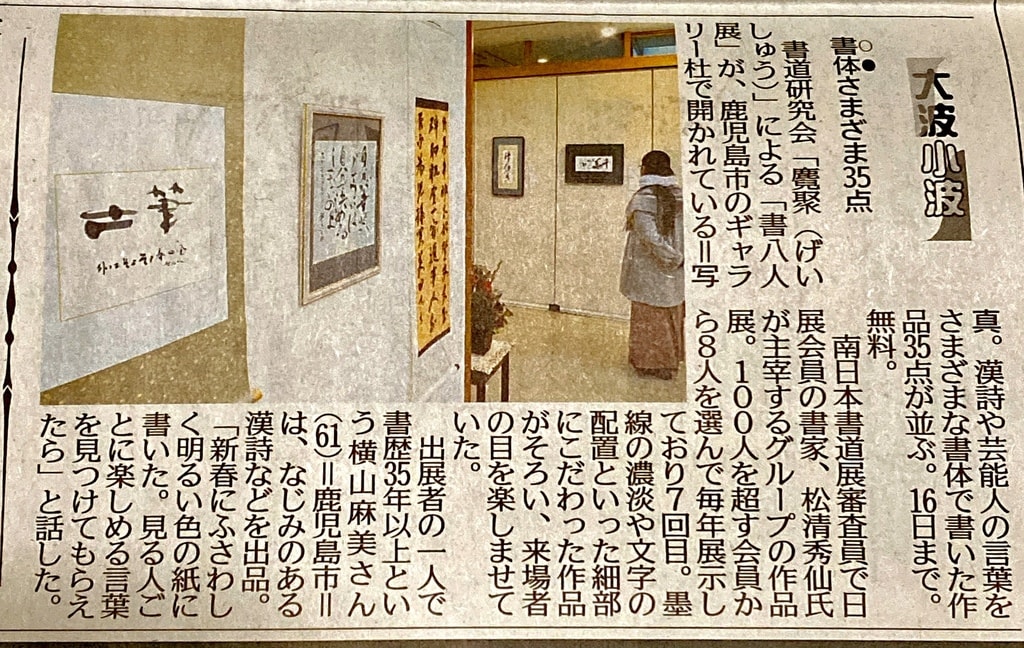 大波小波
○●
書体さまざま35点
書道研究会「麑聚（げい
しゅう）」による「書八人
展」が、鹿児島市のギャラ
リー杜で開かれている＝写
真。漢詩や芸能人の言葉を
さまざまな書体で書いた作
品35点が並ぶ。16日まで。
無料。
南日本書道展審査員で日
展会員の書家、松清秀仙氏
が主宰するグループの作品
展。１００人を超す会員か
ら８人を選んで毎年展示し
ており７回目。墨
線の濃淡や文字の
配置といった細部
にこだわった作品
がそろい、来場者
の目を楽しませて
いた。
出展者の一人で
書歴35年以上とい
う横山麻美さん
（61）＝鹿児島市＝
は、なじみのある
漢詩などを出品。
「新春にふさわし
く明るい色の紙に
書いた。見る人ご
とに楽しめる言葉
を見つけてもらえ
たら」と話した。